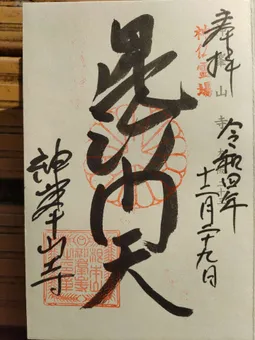 奉拝
神仏霊場
令和四年
十二月二十九日
毘沙門天
神峯山寺